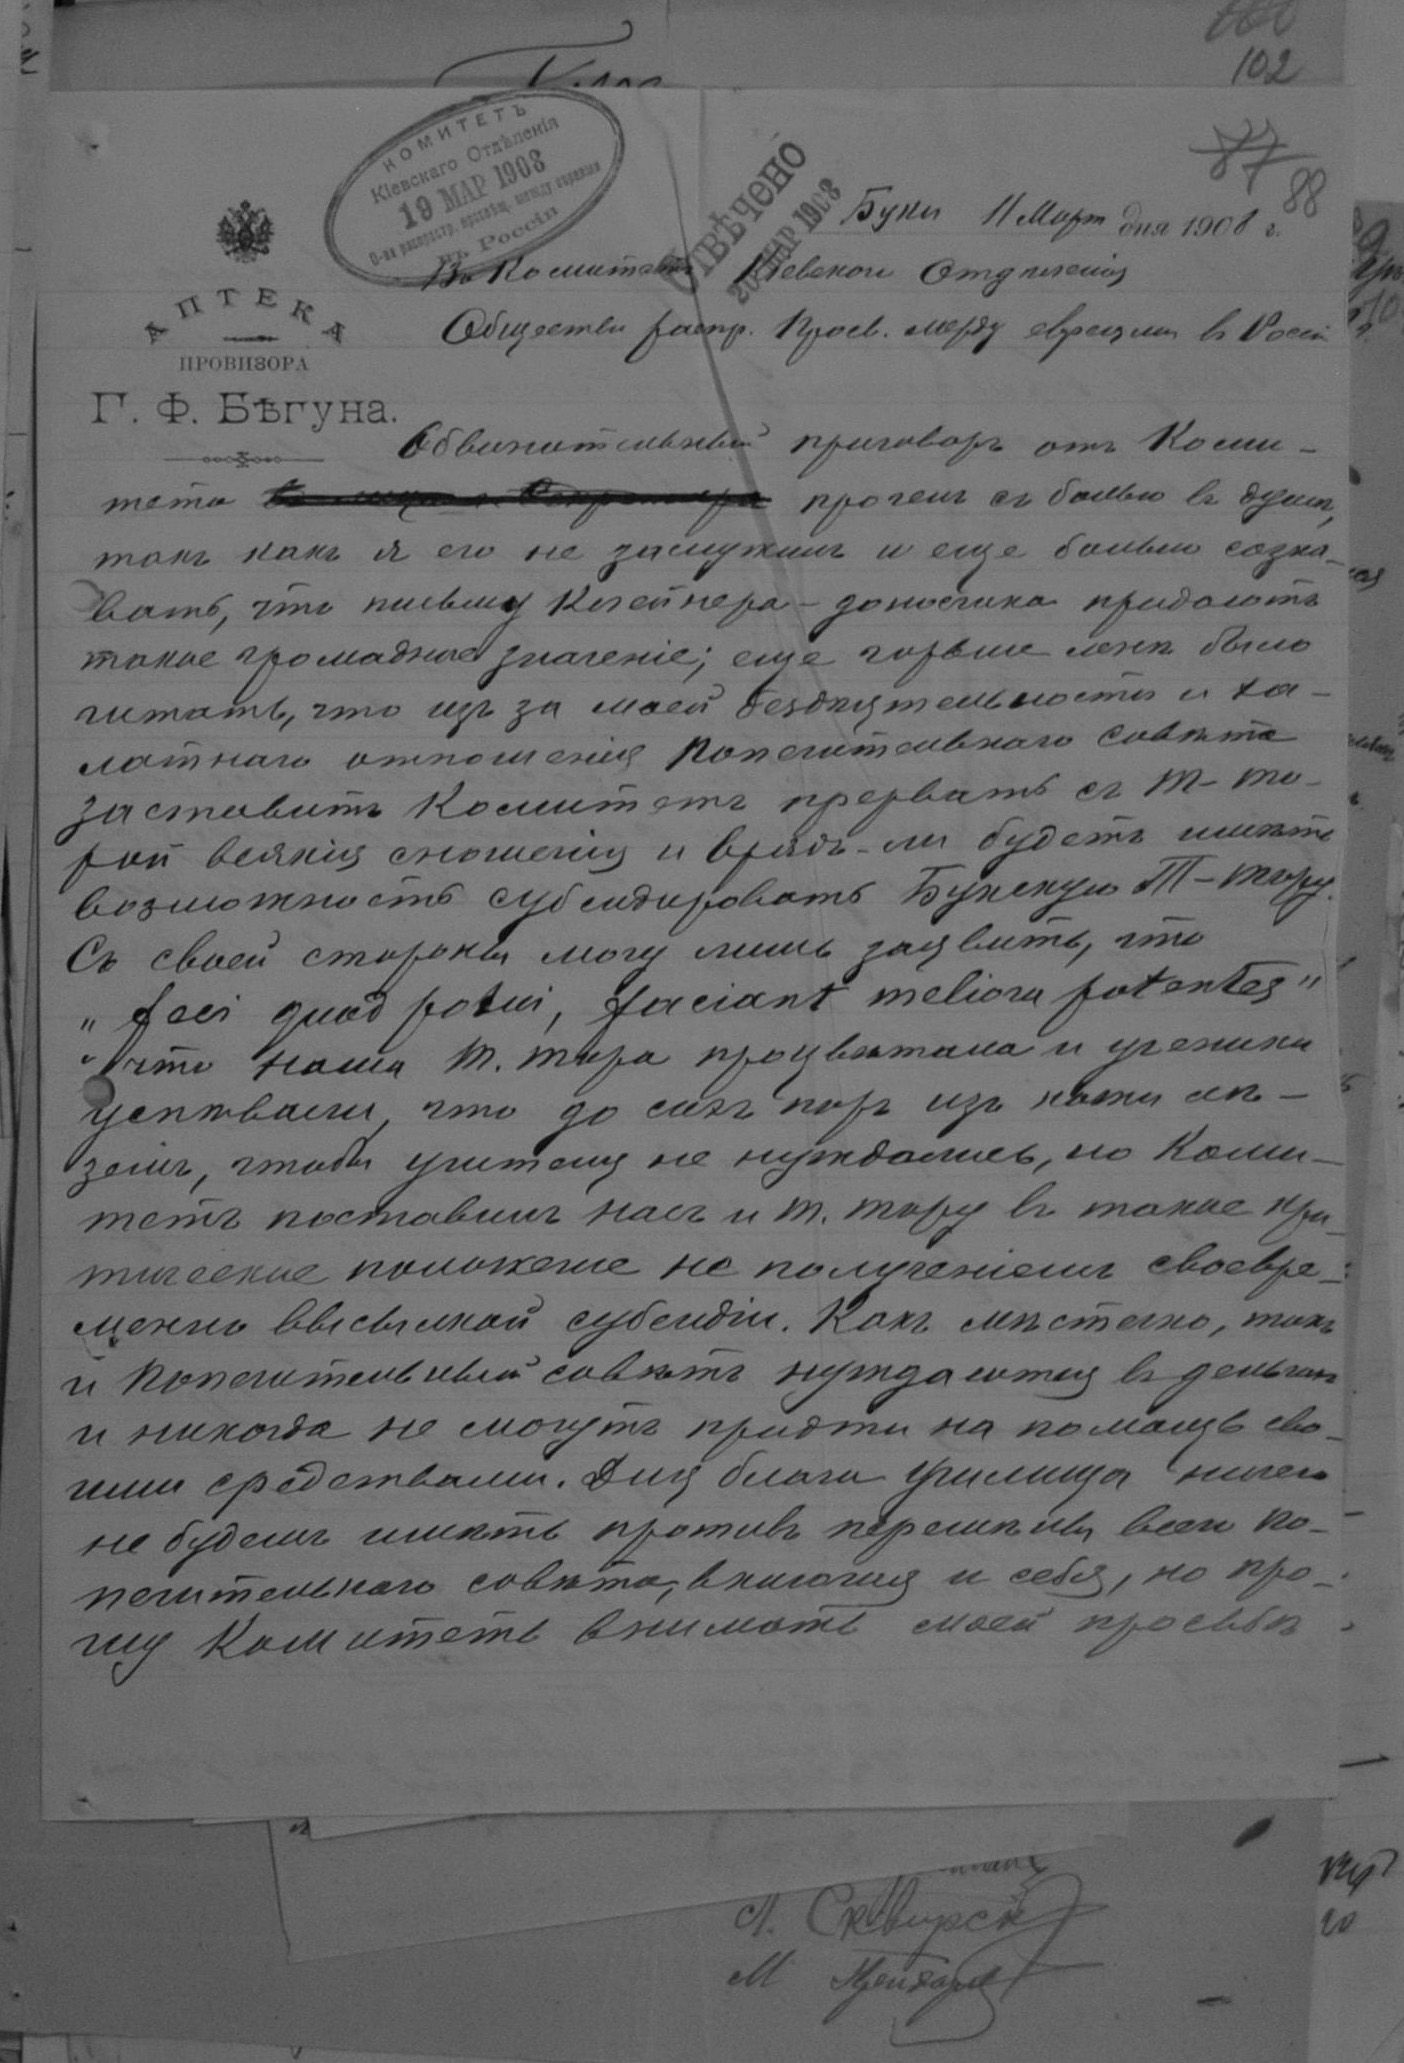 102
87
88
КОМИТЕТЪ
Кіевскаго Отдѣленія
19 МАР 1908
О-ва распростр. просвѣщ. между евреями
въ Россіи
ОТВѢЧЕНО
20 МАР 1908
Буки 11 Март дня 1908 г.
АПТЕКА
ПРОВИЗОРА
Г. Ф. БѢгуна.
Въ Комитетъ Кіевскаго Отдѣленія
Общества распр. Просв. между евреями въ Россіи
Обвинительный приговоръ отъ Коми-
тета прочелъ съ болью въ душѣ,
такъ какъ я его не заслужилъ и еще больно созна-
вать, что письму Клейнера-доносчика придаютъ
такое громадное значеніе; еще горьше мнѣ было
читать, что изъ за моей бездѣятельности и ха-
латнаго отношенія Попечительнаго совѣта
заставитъ Комитетъ прервать съ Т-то-
рой всякія сношенія и врядъ-ли будетъ имѣть
возможность субсидировать Букскую Т-тору.
Съ своей стороны могу лишь заявить, что
„feci quod potui, faciant meliora potentes"
что наша т. тора процвѣтала и ученики
успѣвали, что до сихъ поръ изъ кожи лѣ-
земъ, чтобы учителя не нуждались, но Коми-
тетъ поставилъ насъ и т. тору въ такое кри-
тическое положеніе не полученіемъ своевре-
менно высылкой субсидіи. Какъ мѣстечко, такъ
и Попечительный совѣтъ нуждаются въ деньгахъ
и никогда не могутъ придти на помощь сво-
ими средствами. Для блага Училища ничего
не будемъ имѣть противъ перемѣны всего по-
печительнаго совѣта, включая и себя, но про-
шу Комитетъ внимать моей просьбѣ
Л. Сквирск
М